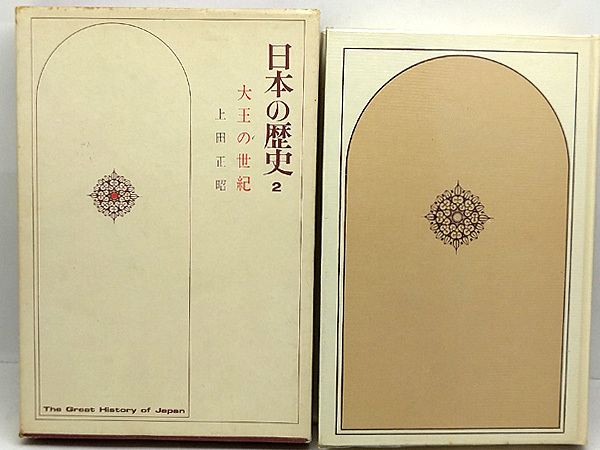 日本の歴史 2
大王の世紀
上田正昭
The Great History of Japan